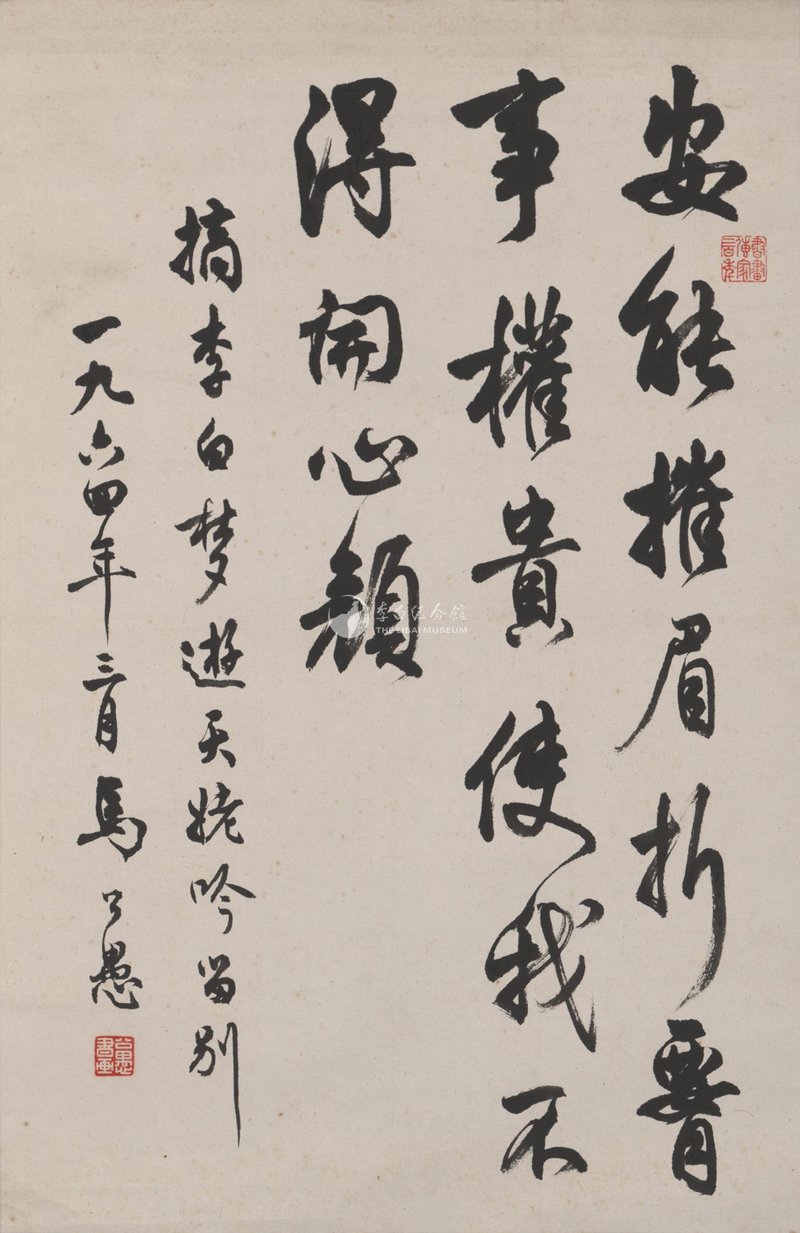 安能摧眉折腰
事權貴使我不
得開心顏
摘李白梦遊天姥吟留别
一九六四年三月馬公愚
公愚書画
李白纪念馆
THE LIBAI MUSEUM